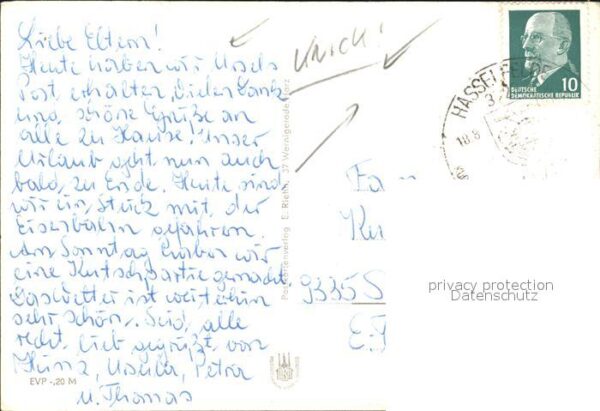 Liebe Eltern!
Heute haben wir Ursels
Post erhalten, vielen Dank
und schöne Grüße an
alle zu Hause. Unser
Urlaub geht nun auch
bald zu Ende. Heute sind
wir ein Stück mit der
Eisenbahn gefahren.
Am Sonntag haben wir
eine Kutschpartie gemacht.
Das Wetter ist weiterhin
sehr schön. Seid alle
recht lieb gegrüßt von
Heinz, Ursula, Petra
u. Thomas
EVP -,20 M
E. Riehn, 37 Wernigerode/Harz
Fa
Ku
9335 S
E.-T
HASSELFELDE
18.8
10
DEUTSCHE
DEMOKRATISCHE REPUBLIK
privacy protection
Datenschutz